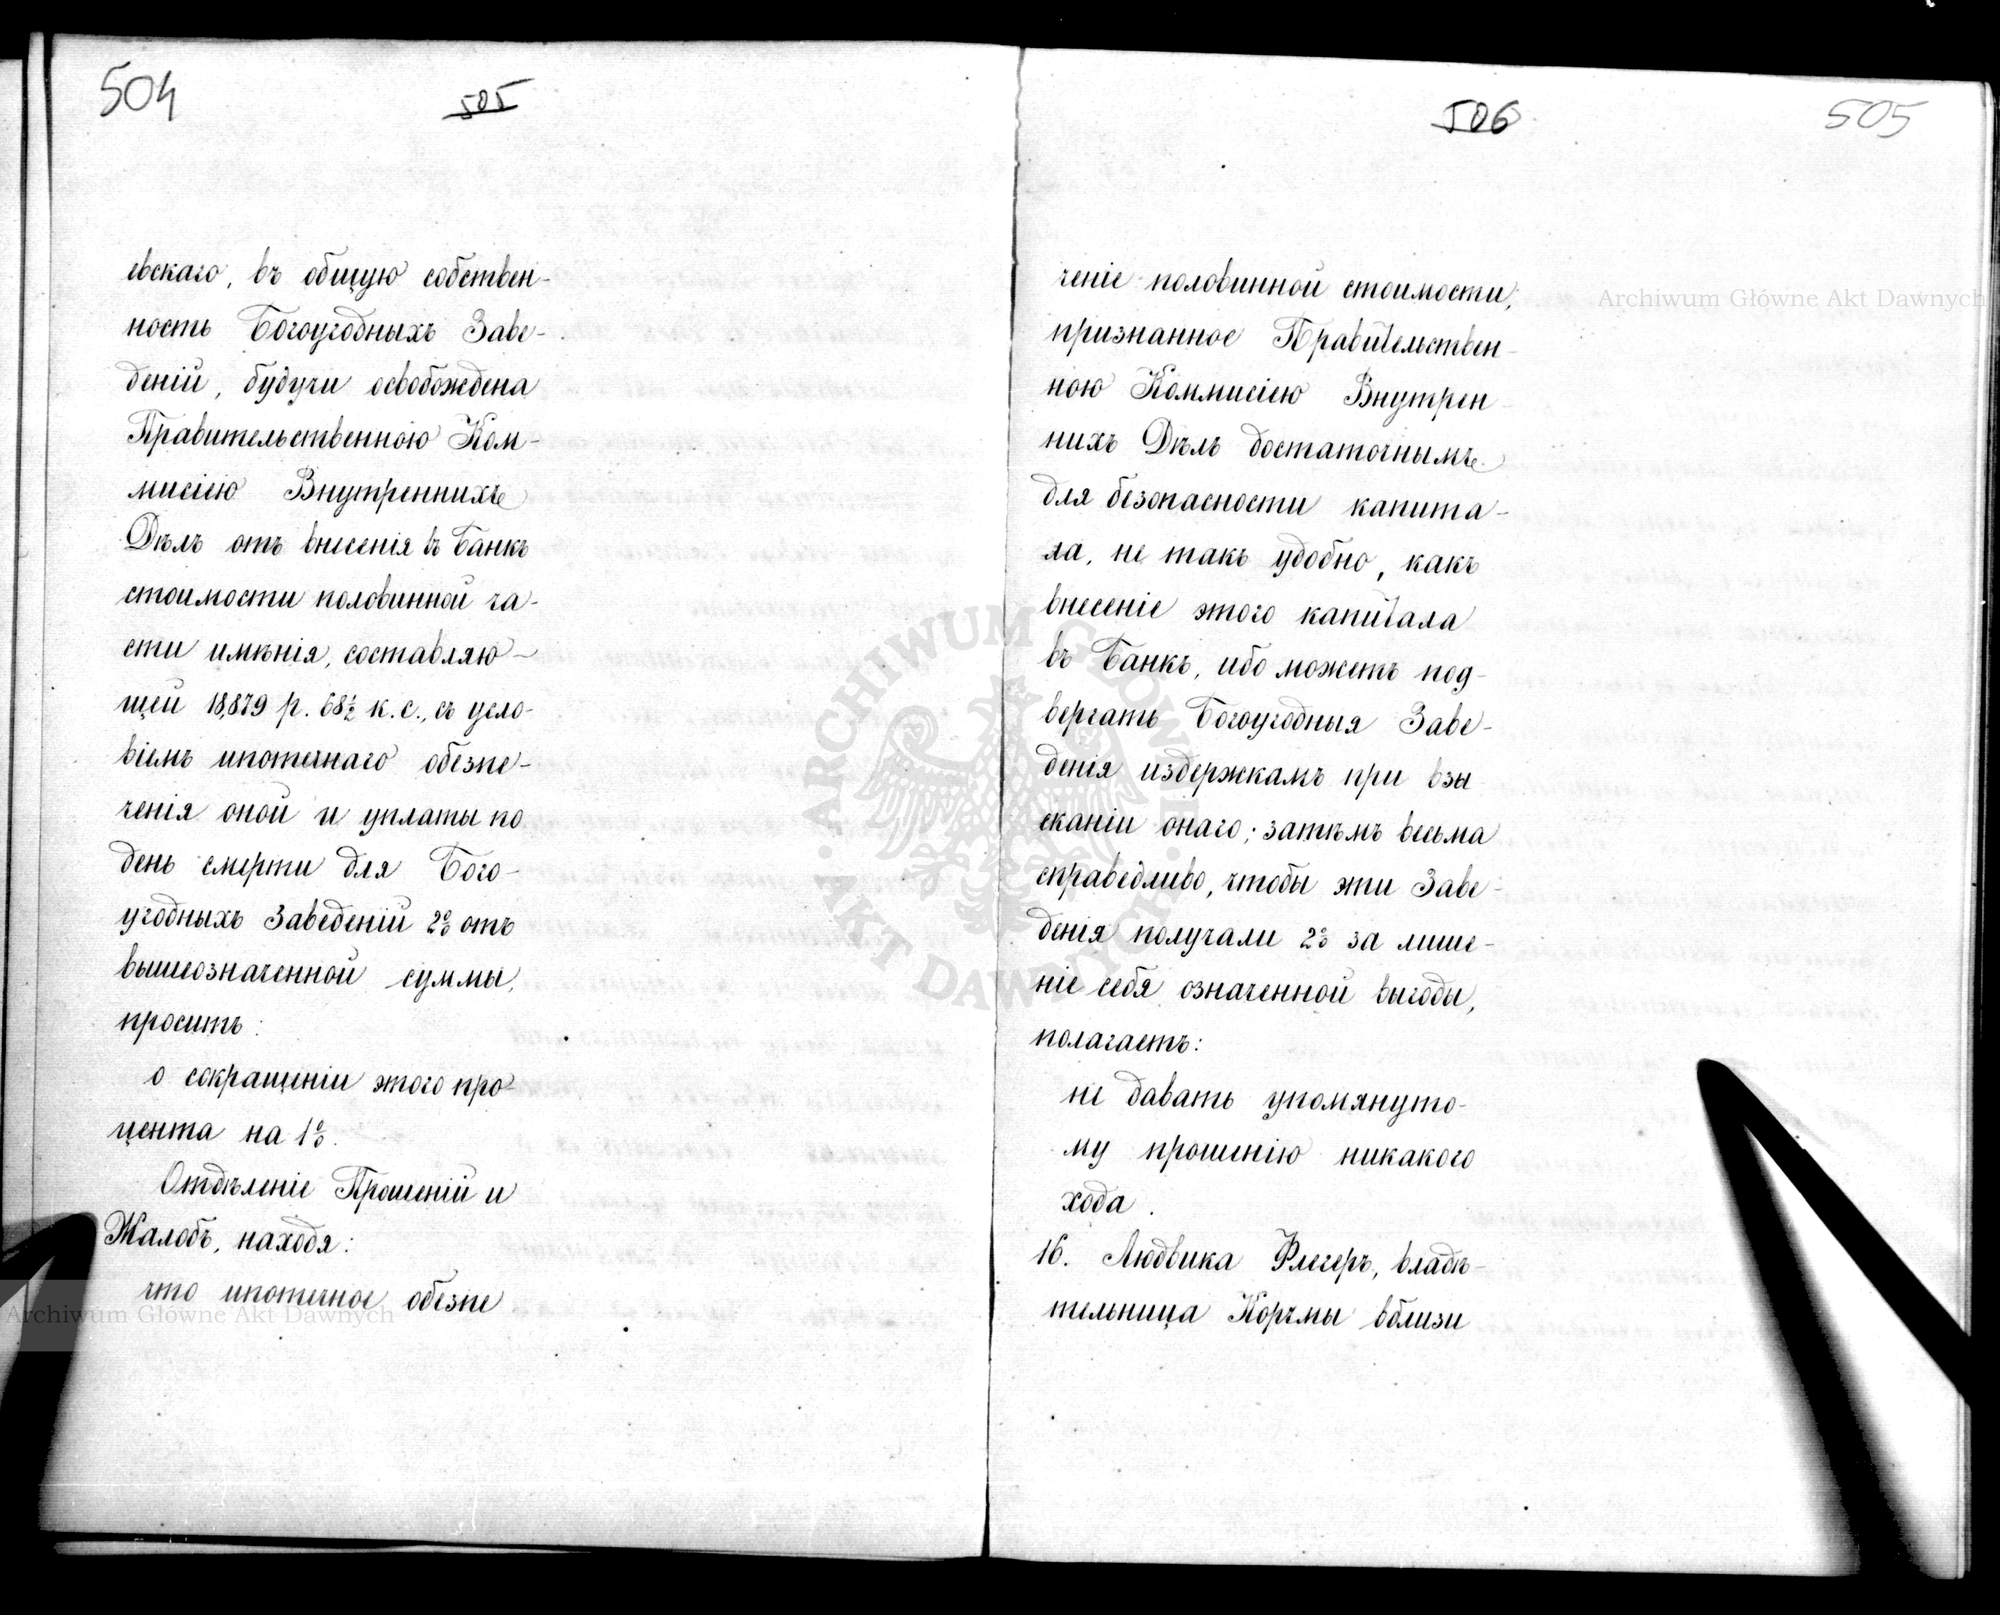 504
505
евскаго, въ общую собствен-
ность Богоугодныхъ Заве-
деній, будучи освобождена
Правительственною Ком-
мисіею Внутреннихъ
Дѣлъ отъ внесенія въ Банкъ
стоимости половинной ча-
сти имѣнія, составляю-
щей 18,879 р. 68½ к. с., съ усло-
віемъ ипотечнаго обезпе-
ченія оной и уплаты по
день смерти для Бого-
угодныхъ Заведеній 2% отъ
вышеозначенной суммы,
проситъ:
о сокращеніи этого про-
цента на 1%.
Отдѣленіе Прошеній и
Жалобъ, находя:
что ипотечное обезпе
506
505
ченіе половинной стоимости,
признанное Правительствен-
ною Коммисіею Внутрен-
нихъ Дѣлъ достаточнымъ
для безопасности капита-
ла, не такъ удобно, какъ
внесеніе этого капитала
въ Банкъ, ибо можетъ под-
вергать Богоугодныя Заве-
денія издержкамъ при взы
сканіи онаго; затѣмъ весьма
справедливо, чтобы эти Заве-
денія получали 2% за лише-
ніе себя означенной выгоды,
полагаетъ:
не давать упомянуто-
му прошенію никакого
хода.
16. Людвика Флегеръ, владѣ-
тельница Корчмы вблизи
Archiwum Główne Akt Dawnych
Archiwum Główne Akt Dawnych
ARCHIWUM GŁÓWNE AKT DAWNYCH